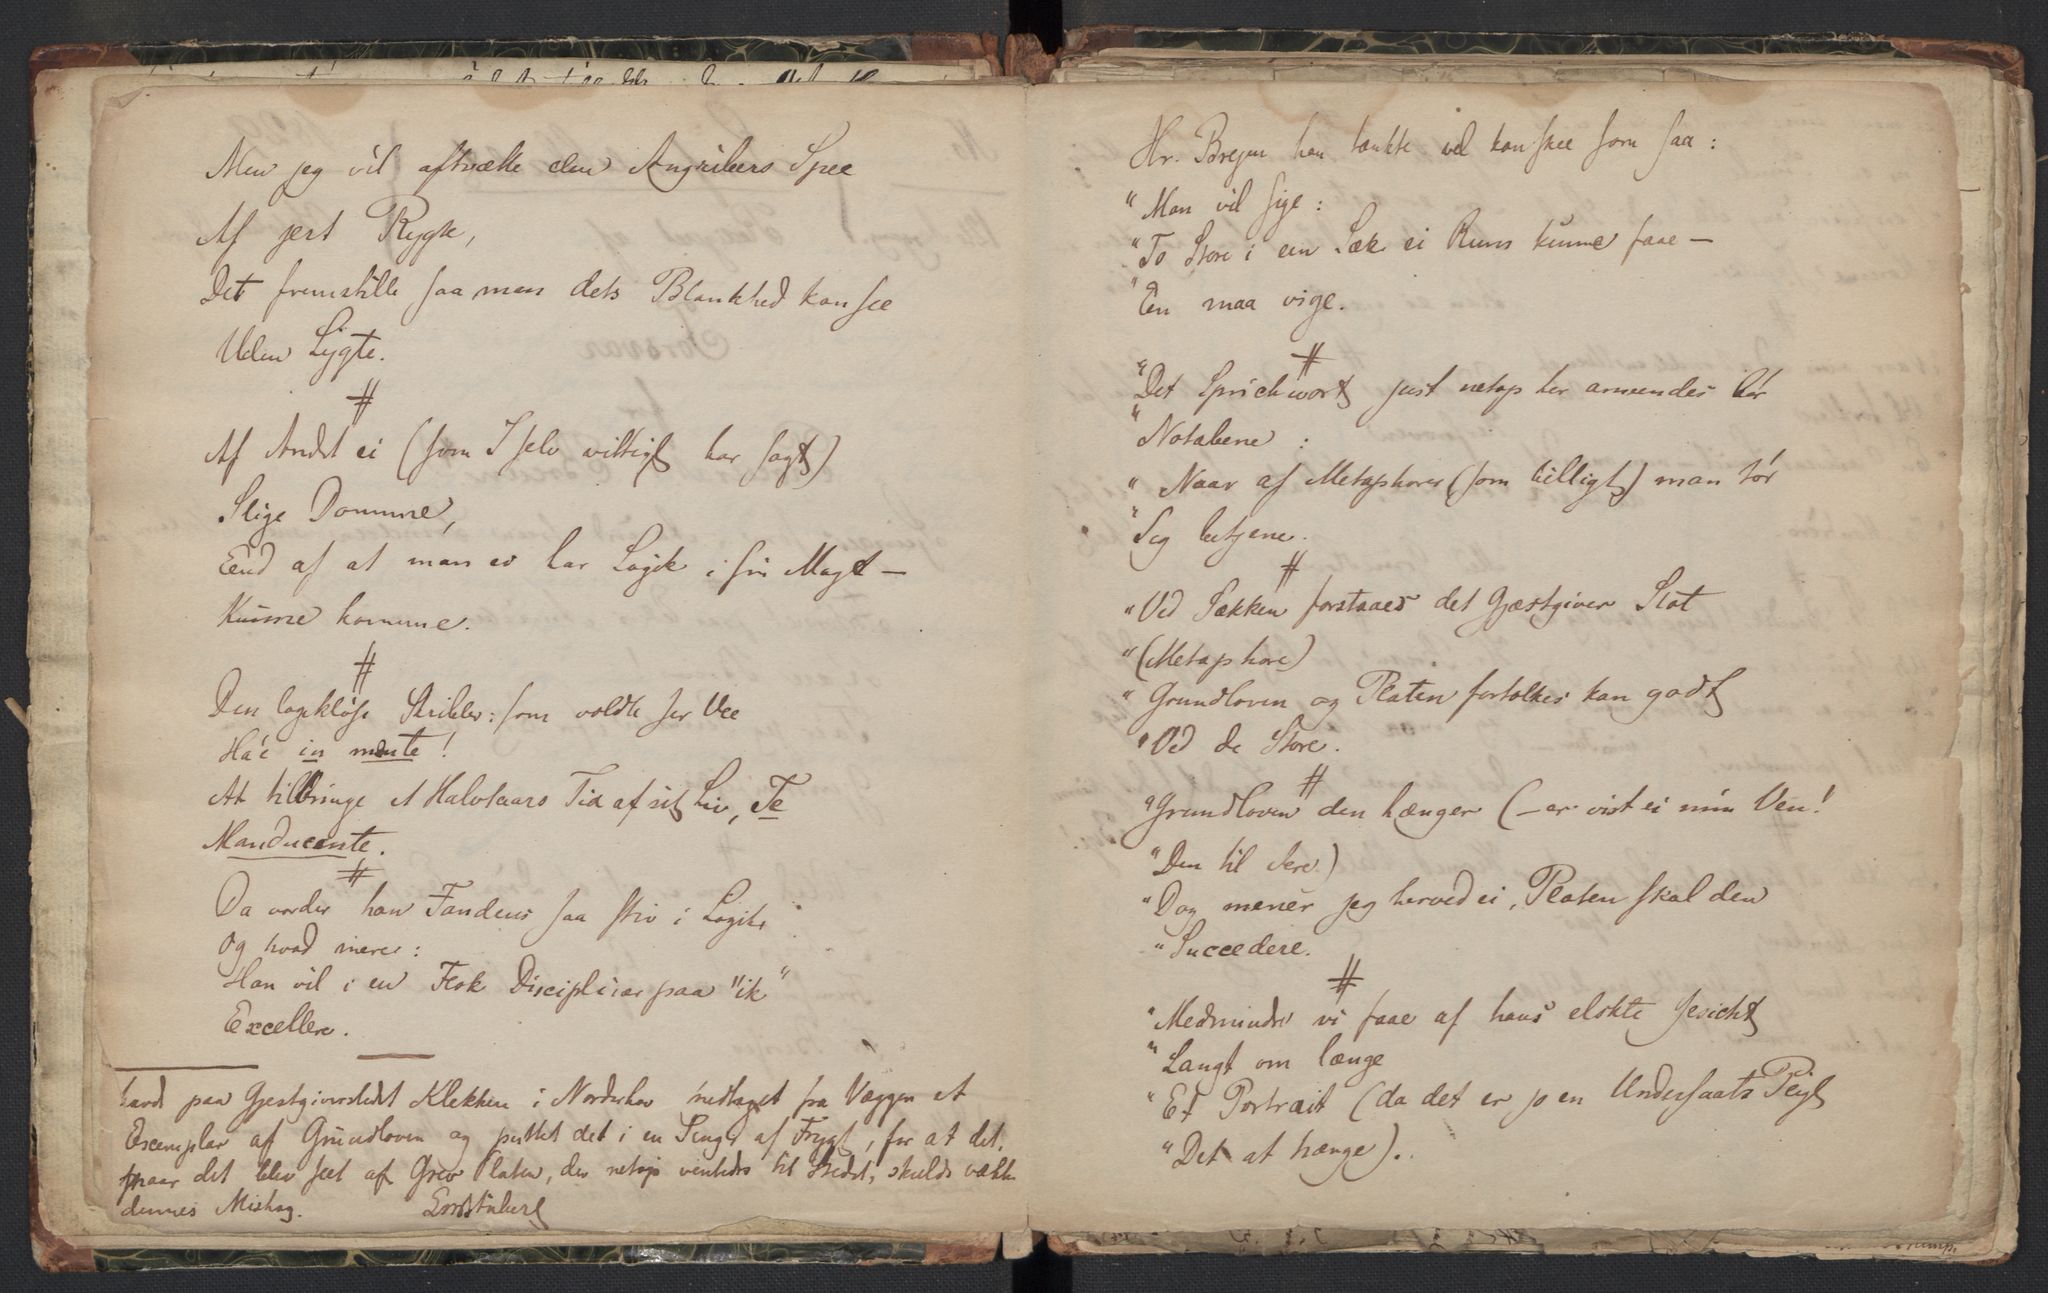 Men jeg vil aftrække den Angribers Spee
Af jert Rygte,
Det fremstille saa man dets Blankhed kan see
Uden Lygte.
#
Af Andet ei (som I selv vittigt har sagt)
Slige Domme,
End af at man ei har Logik i sin Magt —
Kunne komme.
#
Den logikløse Skribler: som voldte jer Vee
Ha'e in mente!
At tilbringe et Halvtaars Tid af sit Liv, Te
Manducente.
#
Da vorder han Fandens saa stiv i Logik
Og hvad mere:
Han vil i en Flok Discipliner paa "ik"
Excellere.
havde paa Gjestgiverstedet Klekken i Norderhov nedtaget fra Væggen et
Exemplar af Grundloven og puttet det i en Seng af Frygt, for at det,
naar det blev seet af Grev Platen, der netop ventedes til Stedet, skulde vække
dennes Mishag.
Hr. Brejen han tænkte vel kanskee som saa:
"Man vil sige:
"To Store i een Sæk ei Rum kunne faae —
"Een maa vige.
#
"Det Sprichwort just netop her anvendes bør
"Notabene:
"Naar af Metaphorer (som billigt) man tør
"Sig betjene.
#
"Ved Sækken forstaaes det Gjæstgiver Slot
"(Metaphore)
"Grundloven og Platen fortolkes kan godt
"Ved de Store.
#
"Grundloven den hænger (— er vist ei min Ven!
"Den til Ære)
"Dog mener jeg herved ei, Platen skal den
"Succedere.
#
"Medmindre vi faae af hans elskte Gesicht
"Langt om længe
"Et Portrait (da det er jo en Undersaats Pligt
"Det at hænge).